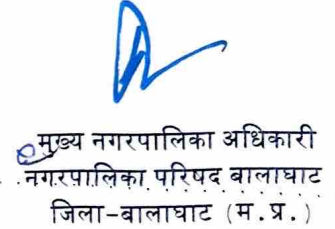 मुख्य नगरपालिका अधिकारी
नगरपालिका परिषद बालाघाट
जिला-बालाघाट (म.प्र.)